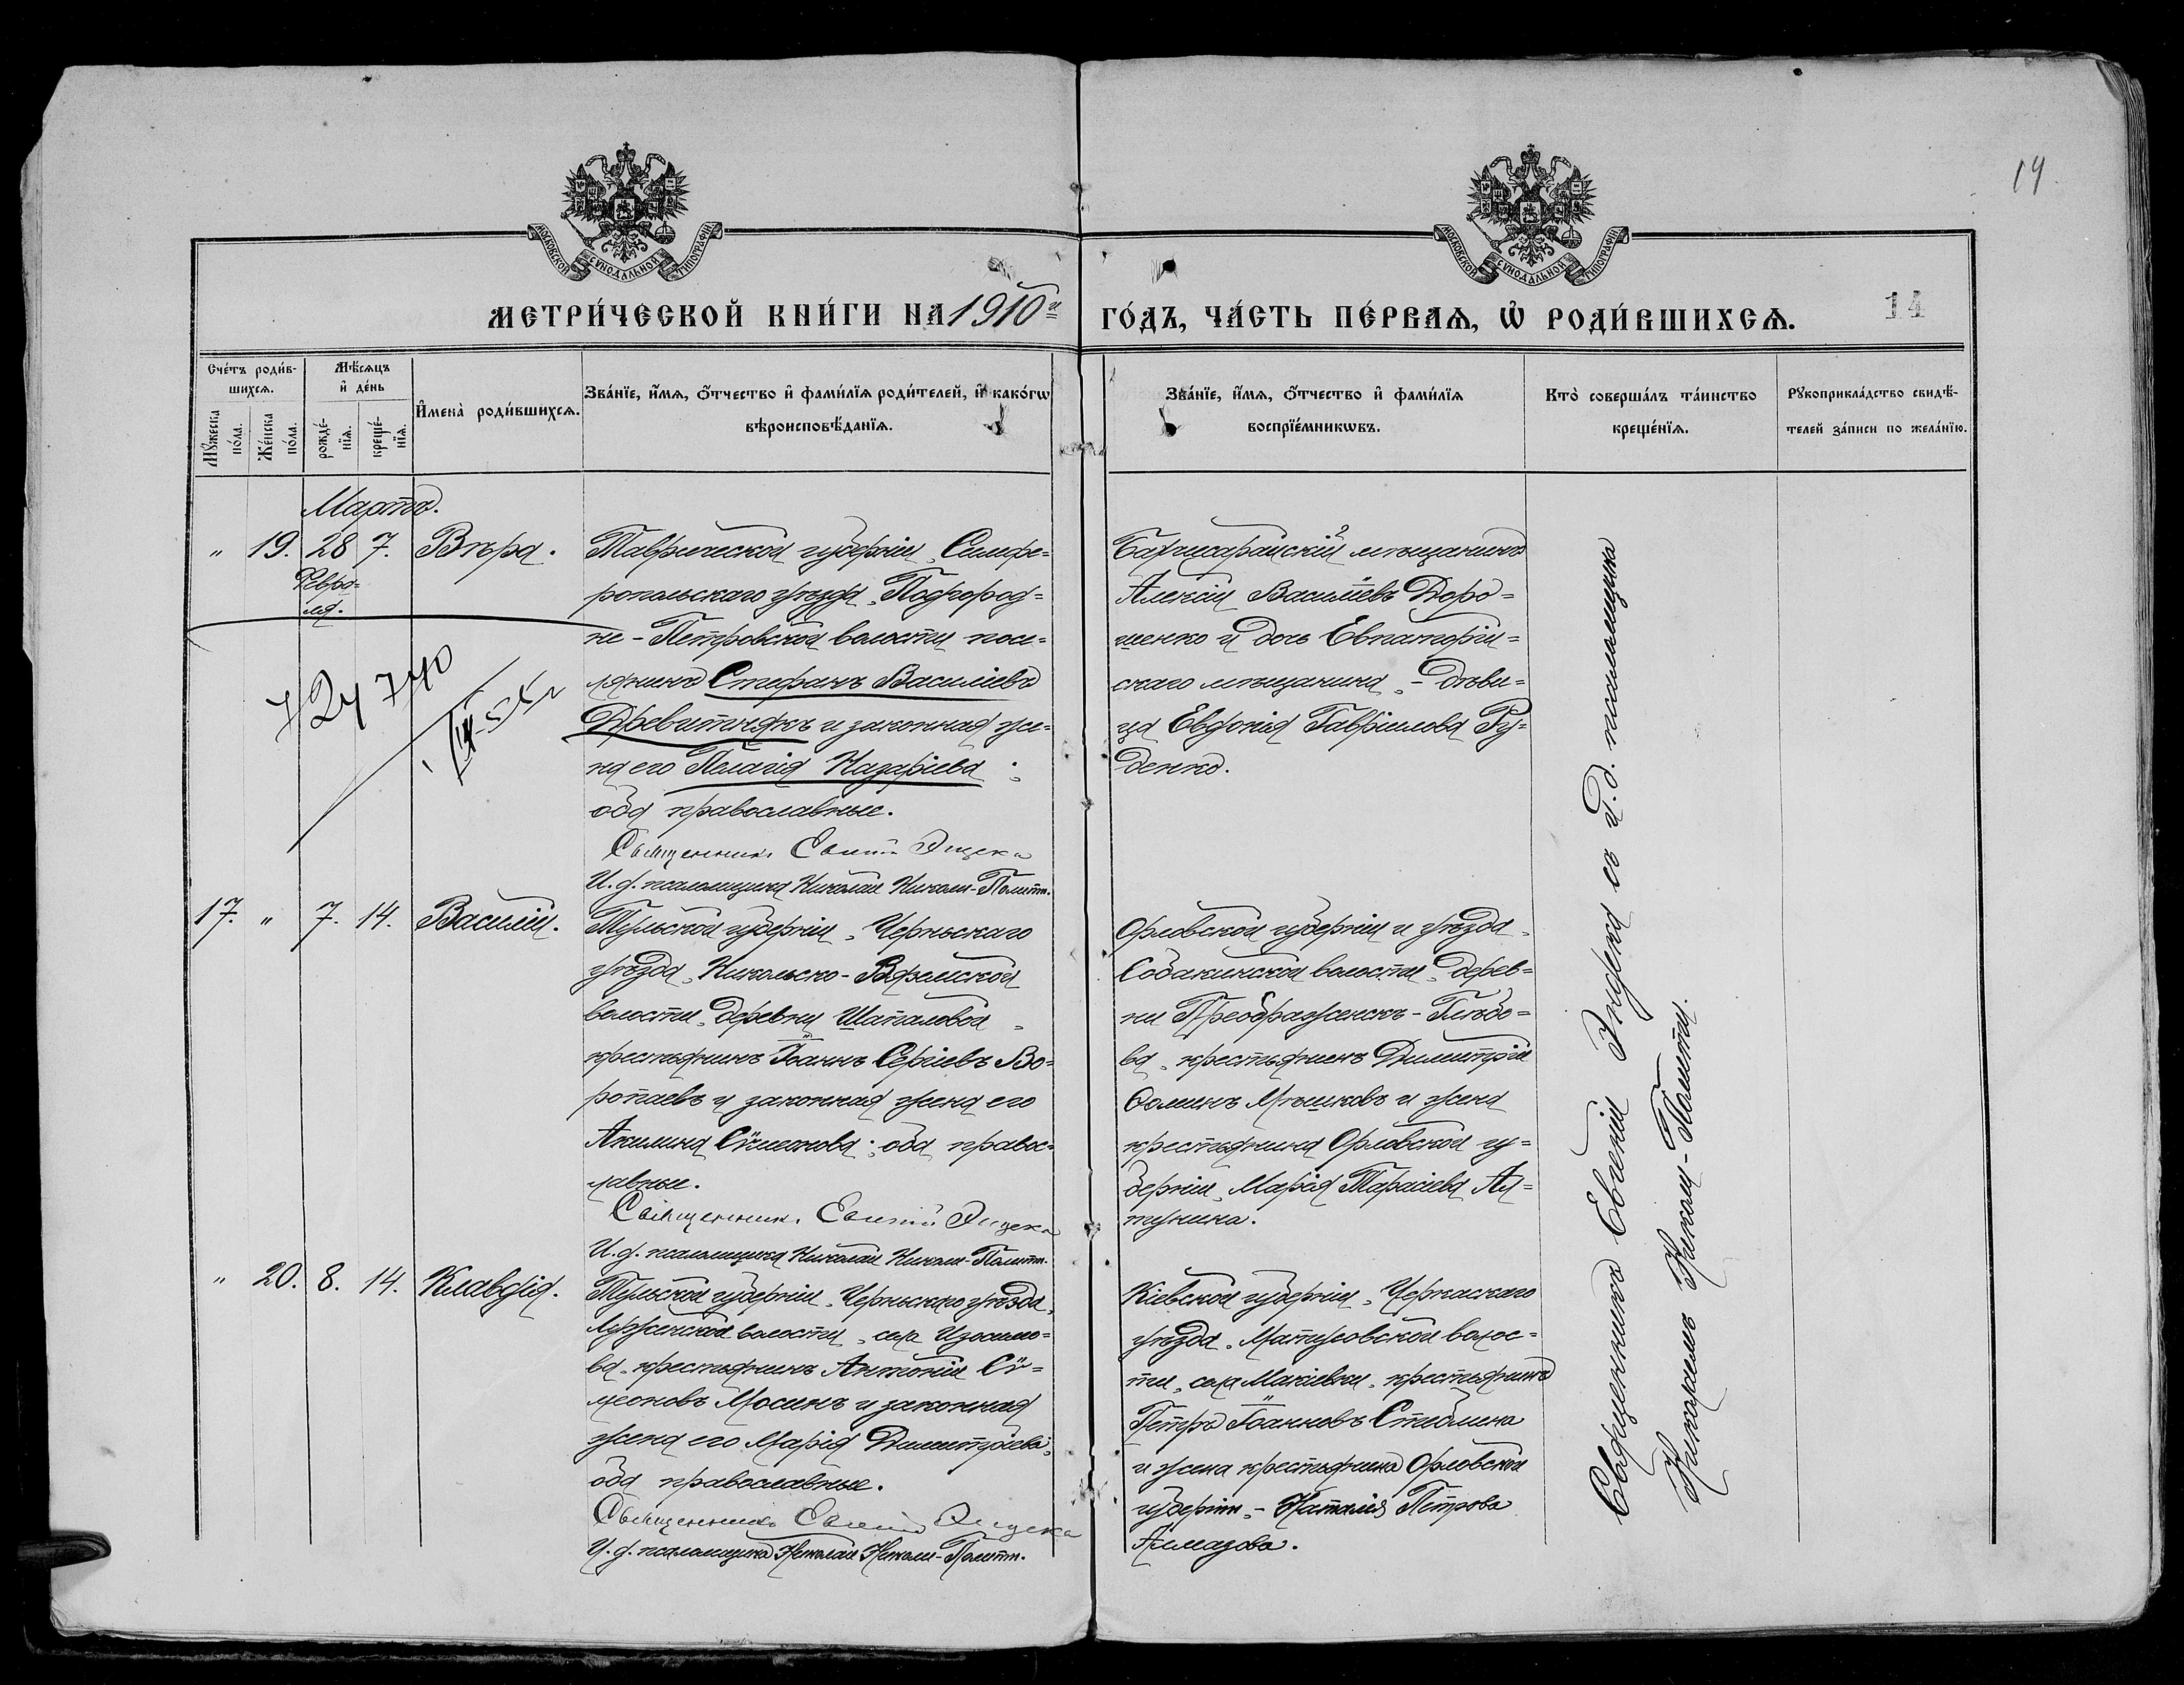 14
МОСКОВСКОЙ СѴНОДАЛЬНОЙ ТИПОГРАФІИ
МОСКОВСКОЙ СѴНОДАЛЬНОЙ ТИПОГРАФІИ
МЕТРИ́ЧЕСКОЙ КНИ́ГИ НА 1910й ГО́ДЪ, ЧА́СТЬ ПЕ́РВАѦ, Ѡ҆ РОДИ́ВШИХСѦ. 14
Сче́тъ роди́в-
шихсѧ.
Мꙋ́жеска по́ла.
Же́нска по́ла.
Мѣ́сѧцъ и҆ де́нь
рожде́-нїѧ.
креще́-нїѧ.
И҆мена̀ роди́вшихсѧ.
Зва́нїе, и҆́мѧ, ѻ҆́тчество и҆ фами́лїѧ роди́телей, и҆ како́гѡ
вѣроисповѣ́данїѧ.
Зва́нїе, и҆́мѧ, ѻ҆́тчество и҆ фами́лїѧ
воспрїе́мникѡвъ.
Кто̀ соверша́лъ та́инство
креще́нїѧ.
Рꙋкоприкла́дство свидѣ́-
телей за́писи по жела́нїю.
Марта.
" 19. 28 7. Вѣра.
Февра=
ля.
Таврической губерніи, Симфе=
ропольскаго уѣзда, Подгород=
не-Петровской волости посе=
лянинъ Стефанъ Василіевъ
Древитнякъ и законная же=
на его Пелагія Назаріева;
оба православные.
Священникъ Евгеній Эндека
И. д. псаломщика Николай Николи-Полити.
Бахчисарайскій мѣщанинъ
Алексій Василіевъ Доро=
шенко и дочь Евпаторій=
скаго мѣщанина, - дѣви=
ца Евдокія Гавріилова Ру=
денко.
724 740
17. " 7. 14. Василій.
Тульской губерніи, Чернскаго
уѣзда, Никольско-Вяземской
волости, деревни Шаталовой,
крестьянинъ Іоаннъ Сергіевъ Во=
ропаевъ и законная жена его
Акилина Сѵмеонова; оба правос=
лавные.
Священникъ Евгеній Эндека
И. д. псаломщика Николай Николи-Полити.
Орловской губерніи и уѣзда,
Собакинской волости, дерев=
ни Преображенскъ-Глѣбо=
ва, крестьянинъ Димитрій
Ѳоминъ Мѣшковъ и жена
крестьянина Орловской гу=
берніи, Марія Тарасіева Ал=
тунина.
" 20. 8. 14. Клавдія.
Тульской губерніи, Чернскаго уѣзда,
волости, села Изосимо=
ва, крестьянинъ Антоній Сѵ=
меоновъ Мосинъ и законная
жена его Марія Димитріева;
оба православные.
Священникъ Евгеній Эндека
И. д. псаломщика Николай Николи-Полити.
Кіевской губерніи, Черкаскаго
уѣзда, Матусовской волос=
ти, села Макіевки, крестьянинъ
Петръ Іоанновъ Стеблина
и жена крестьянина Орловской
губерніи, - Наталія Петрова
Алмазова.
Священникъ Евгеній Эндека съ и. д. псаломщика
Николаемъ Николи-Полити.